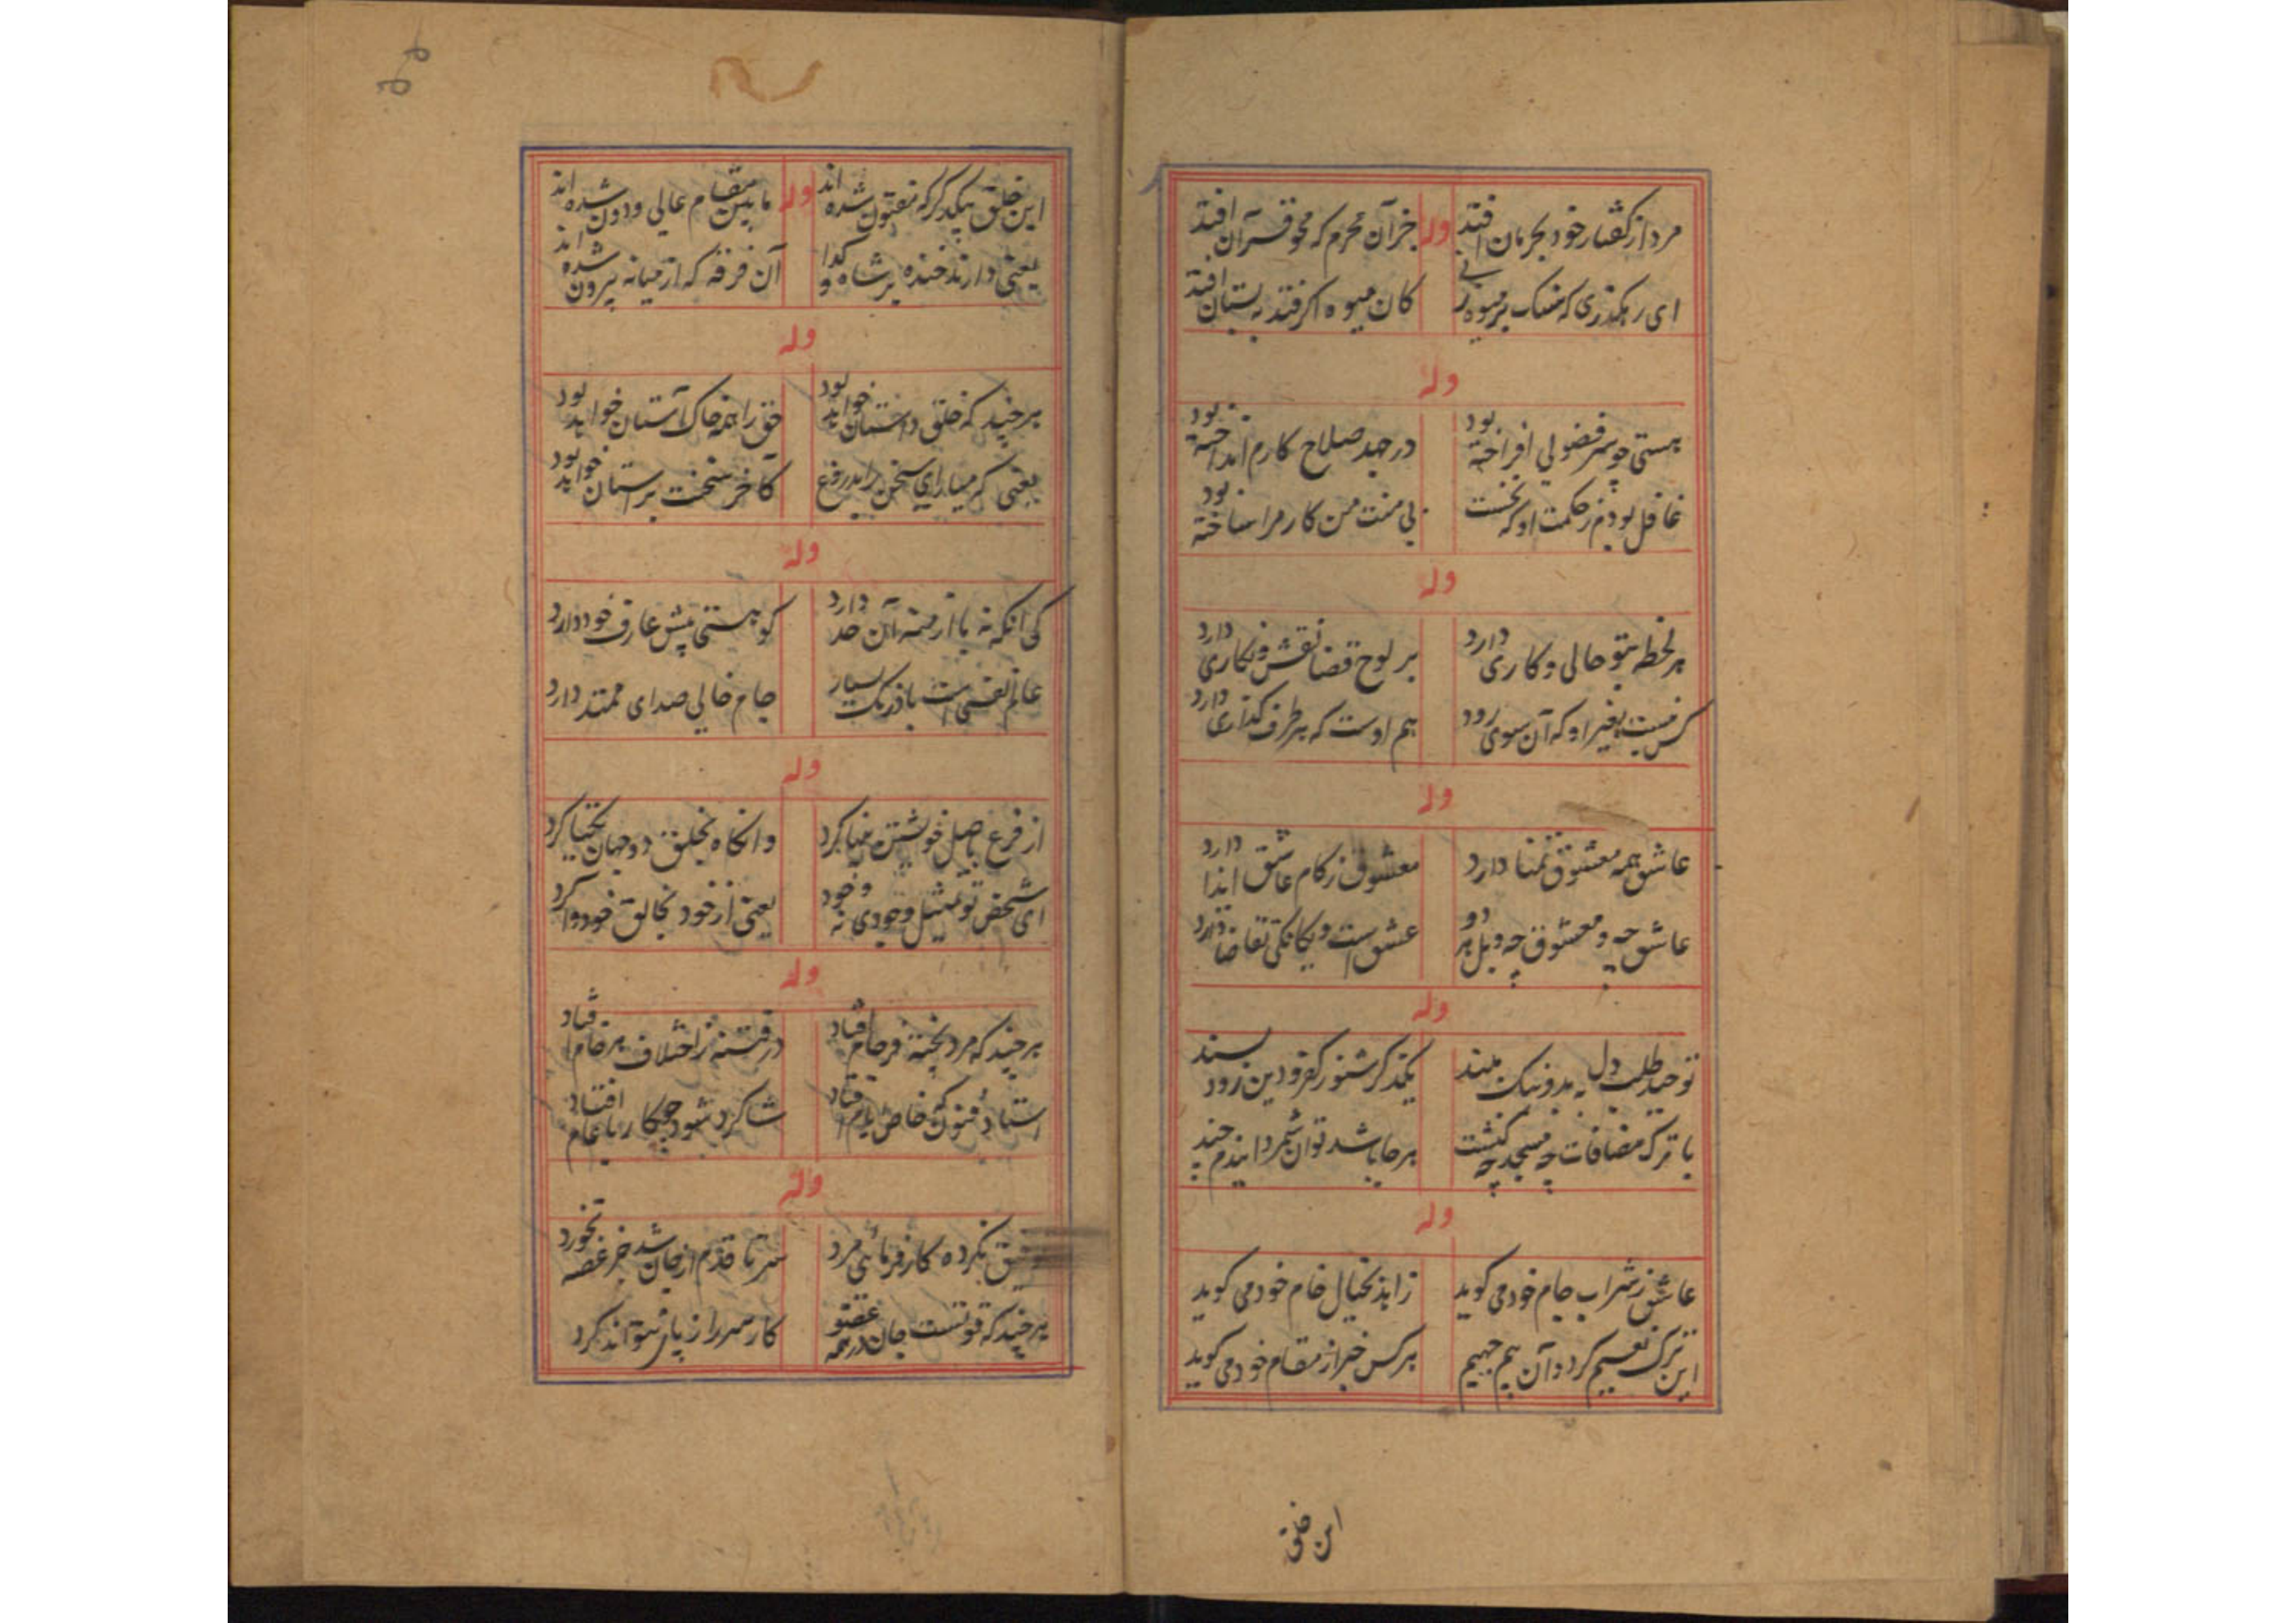 مرد از گفتار خود بحرمان افتد وله جز آن محرم که محو قرآن افتد
ای رهگذری که سنگ بر میوه زنی کان میوه اگر فتد به بستان افتد
وله
هستی چو سر فضولی افراخته بود در جهد صلاح کارم انداخته بود
غافل بودم ز حکمت او که نخست بی منت من کار مرا ساخته بود
وله
هر لحظه بتو حالی و کاری دارد بر لوح قضا نقش و نگاری دارد
کس نیست بغیر او که آن سوی رود هم اوست که هر طرف گذاری دارد
وله
عاشق همه معشوق تمنا دارد معشوق ز کام عاشق ایذا دارد
عاشق چه و معشوق چه و بل هر دو عشق است و یگانگی تقاضا دارد
وله
توحید طلب دل به بد و نیک مبند یکذکر شنو ز کفر و دین زود پسند
با ترک مضافات چه مسجد چه کنشت هرجا باشد توان شمردا نیدم چند
وله
عاشق ز شراب جام خود می گوید زاهد بخیال خام خود می گوید
این ترک نعیم کرد و آن بیم جحیم هر کس خبر از مقام خود می گوید
این خلق
این خلق بیکدگر که مفتون شده اند وله مابین مقام عالی و دون شده اند
یعنی دارند خنده بر شاه و گدا آن فرقه که از میانه بیرون شده اند
وله
هر چند که خلق داستان خواهد بود حق را همه خاک آستان خواهد بود
یعنی که میارای سخن را بدروغ کاخر سخنت بر استان خواهد بود
وله
کی آنکه نه با ترجمه آن حد دارد کو هستی پیش عارف خود دارد
عالم نفسی است با درنگ بسیار جام خالی صدای ممتد دارد
وله
از فرع باصل خویشتن پیدا کرد وانگاه بخلق دو جهان یکتا کرد
ای شخص تو تمثیل وجودی نه وجود یعنی از خود بخالق خود وا کرد
وله
هر چند که مرد پخته فرجام فتاد در فتنه ز اختلاف هر خام افتاد
استاد فنون که خاص ایام افتاد شاگرد شود چو کار با عام افتاد
وله
نکرده کار فرمائی مرد سر تا قدم از جان شد جز غصه نخورد
هر چند که قوتست جان در همه عضو کار سر را ز پای نتواند کرد